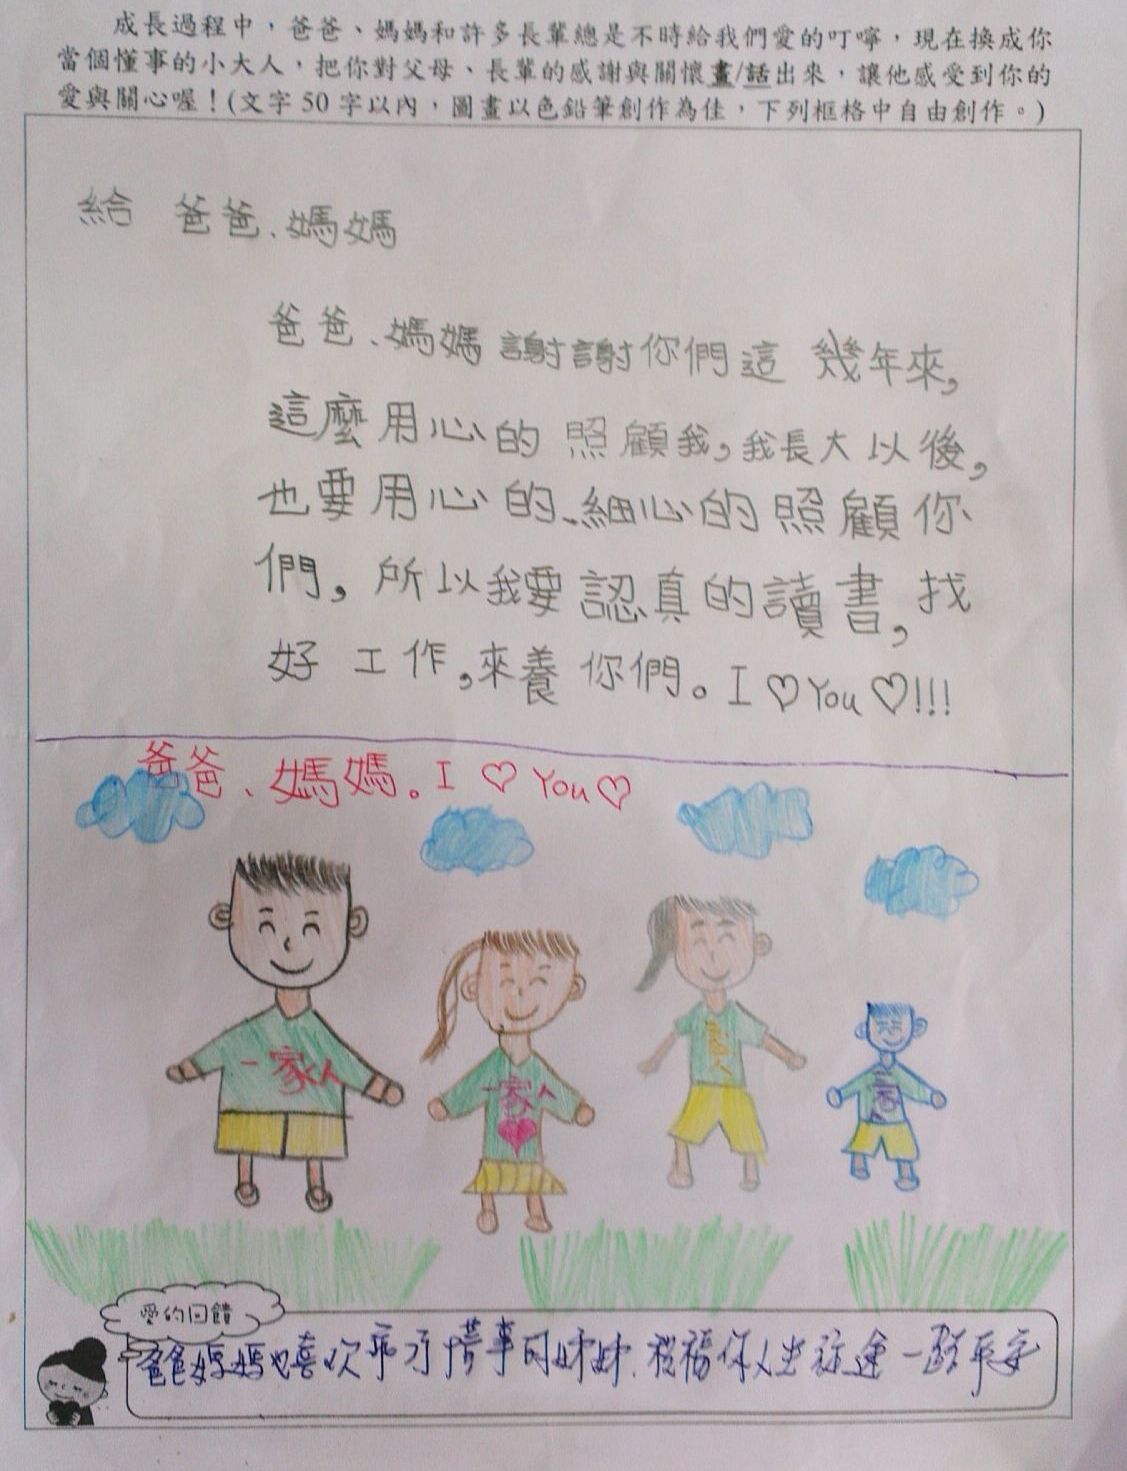 成長過程中，爸爸、媽媽和許多長輩總是不時給我們愛的叮嚀，現在換成你
當個懂事的小大人，把你對父母、長輩的感謝與關懷畫/話出來，讓他感受到你的
愛與關心喔！(文字50字以內，圖畫以色鉛筆創作為佳，下列框格中自由創作。)
給 爸爸、媽媽
爸爸、媽媽謝謝你們這幾年來，
這麼用心的照顧我，我長大以後，
也要用心的、細心的照顧你
們，所以我要認真的讀書，找
好工作，來養你們。I♡You♡!!!
爸爸、媽媽。I ♡ You♡
一家人
一家人
一家人
一家人
愛的回饋
爸爸媽媽也喜歡乖巧懂事的姊姊.祝福你人生旅途一路平安